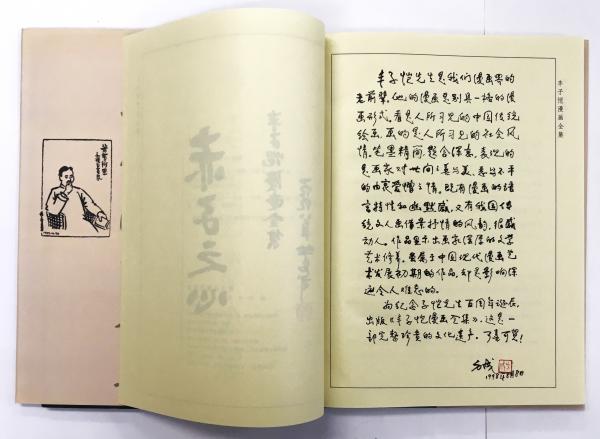 丰子恺先生是我们漫画界的
老前辈。他的漫画是别具一格的漫
画形式。看是人所习见的中国传统
绘画,画的是人所习见的社会风
情。笔墨精简,题含深意,表现的
是画家对世间之善与美、恶与不平
的由衷爱憎之情。既有漫画的语
言特性和幽默感,又有我国传
统文人画借景抒情的风韵,很感
动人。作品显示出画家深厚的文学
艺术修养。虽属于中国现代漫画艺
术发展初期的作品,却是影响深
远令人难忘的。
为纪念子恺先生百周年诞辰,
出版《丰子恺漫画全集》,这是一
部完整珍贵的文化遗产。可喜可贺!
方成
丰子恺漫画全集